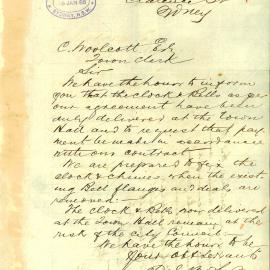 16 JAN 88
SYDNEY, N.S.W.
Clarence St
Sydney
C. Woolcott Esq
Town Clerk
Sir
We have the honor to inform
you that the clock & Bells as per
our agreement have been
duly delivered at the Town
Hall and to request that pay-
ment be made in accordance
with our contract.
We are prepared to fix the
clock & chimes when the exist-
ing Bell flanges and deals are
removed.
The clock & Bells now delivered
at the Town Hall remain at the
risk of the City Council
We have the honor to be
Your obt Servants